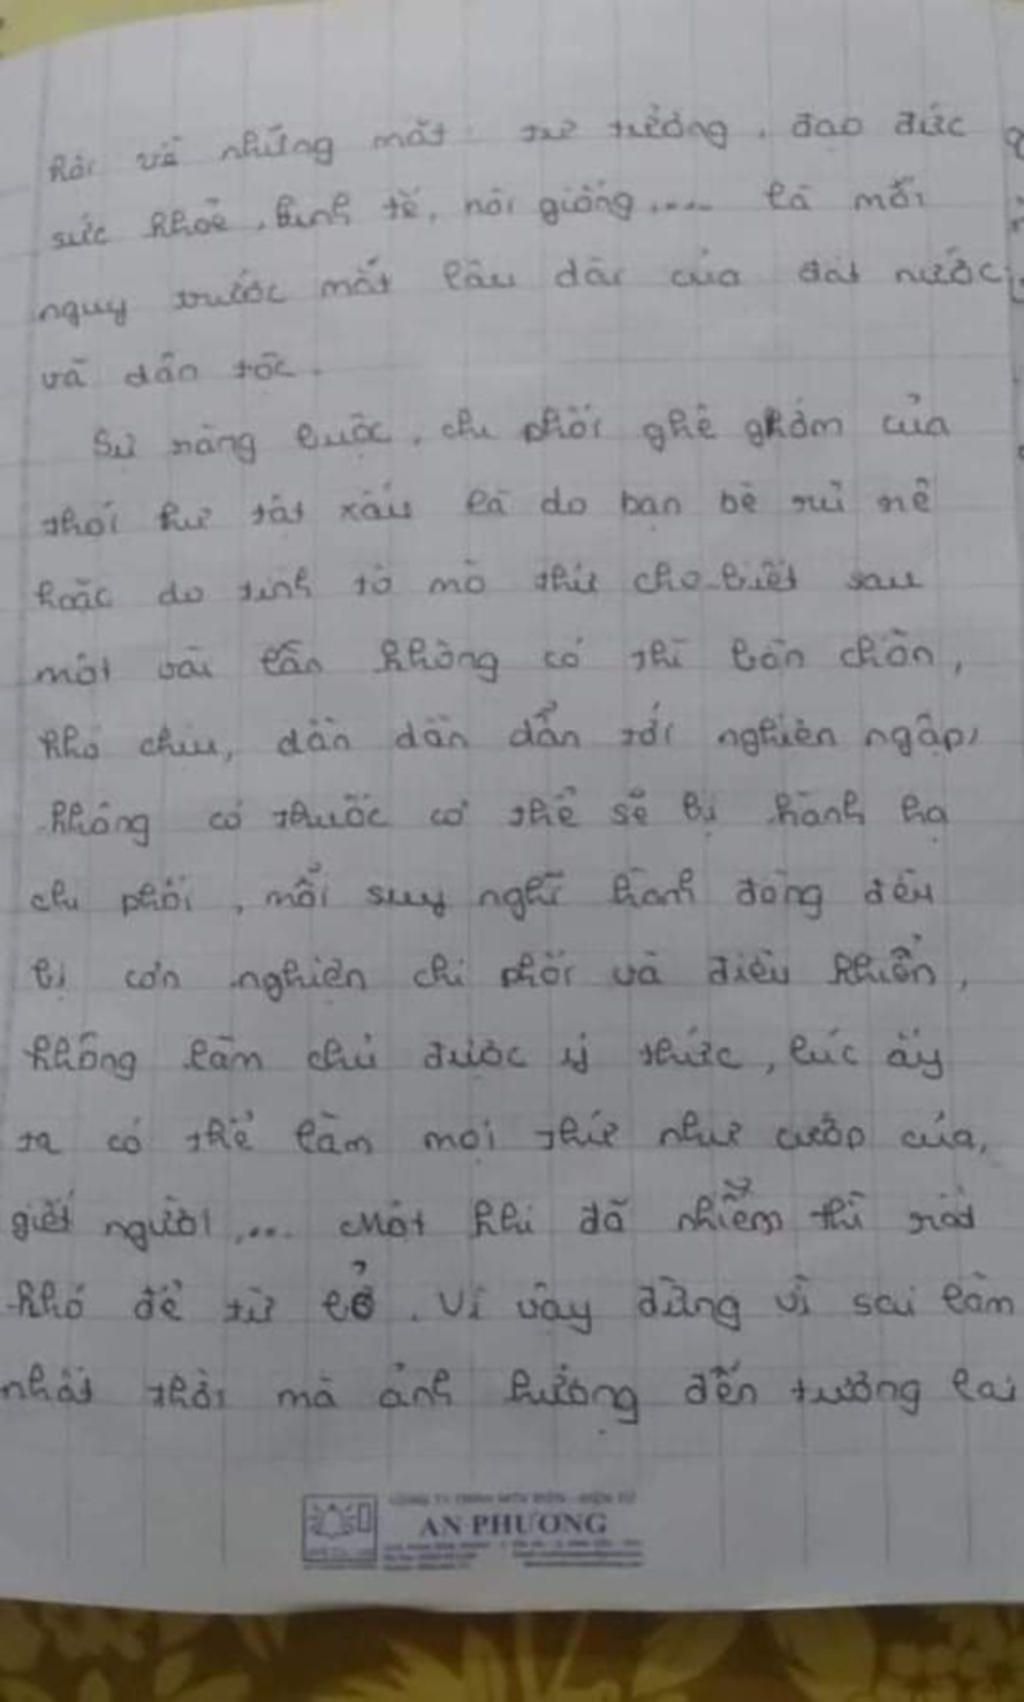 hại về những mặt tư tưởng, đạo đức
sức khỏe, kinh tế, nòi giống.... là mối
nguy trước mắt lâu dài của đất nước
và dân tộc.
Sự ràng buộc, chi phối ghê ghớm của
thói hư tật xấu là do bạn bè rủi rê
hoặc do tính tò mò thử cho biết sau
một vài lần không có thì bồn chồn,
khó chịu, dần dần dẫn tới nghiện ngập,
không có thuốc cơ thể sẽ bị hành hạ
chi phối, mỗi suy nghĩ hành động đều
bị cơn nghiện chi phối và điều khuển,
không làm chủ được ý thức, lúc ấy
ta có thể làm mọi thứ như cướp của,
giết người,... Một khi đã nhiễm thì rất
khó để từ bỏ. Vì vậy đừng vì sai lầm
nhất thời mà ảnh hưởng đến tương lai
AN PHƯƠNG